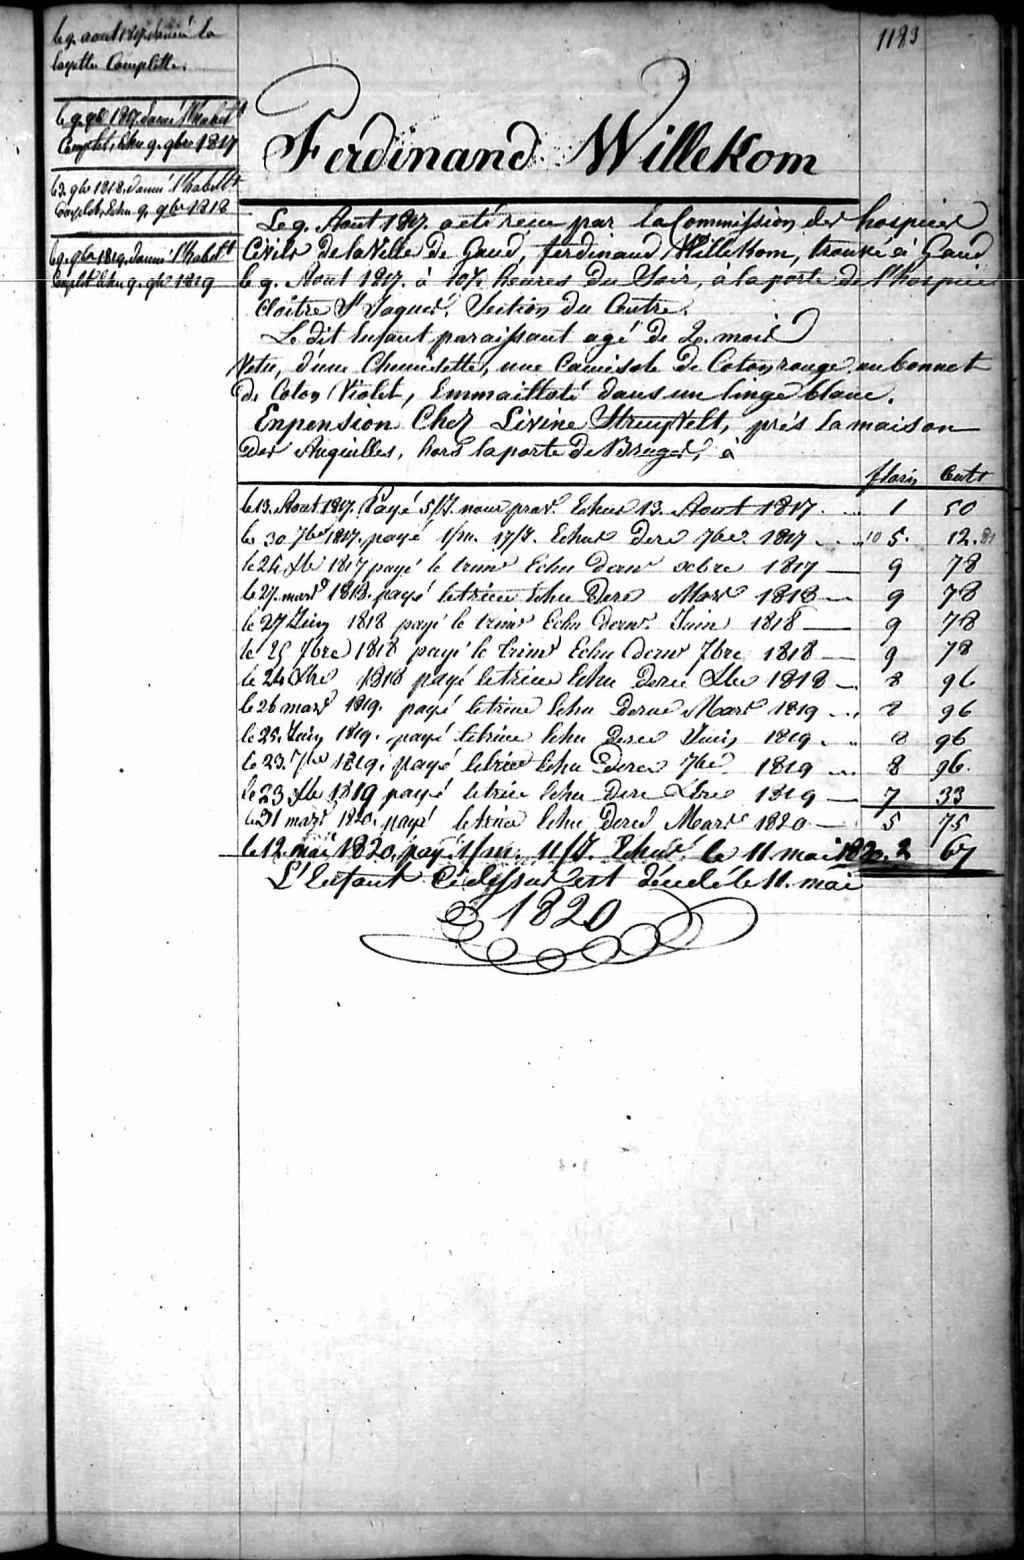 1183
le 9. aout 1817. donné la
layette Complette.
le 9. 9bre 1817. donné l'habillt
Complet, Echu 9. 9bre 1817
le 9. 9bre 1818. donné l'habillt
Complet, Echu 9. 9bre 1818
le 9. 9bre 1819. donné l'habillt
Complet Echu 9. 9bre 1819
Ferdinand Willekom
Le 9. Aout 1817. a eté recu par la Commission des hospices
Civils de la Ville de Gand, ferdinand Willekom, trouvé à Gand
le 9. Aout 1817. à 10½ heures du Soir, à la porte de l'hospice
Cloître St Jaques, Section du Centre.
Le dit Enfant paraissant agé de 2. mois
Vetu, d'une Chemisette, une Camisole de Coton rouge, un bonnet
de Coton Violet, Emmailloté dans un linge blanc.
En pension Chez Livine Struyvelt, près la maison
des Anguilles, hors la porte de Bruges, à
florins Cents
le 13. Aout 1817. Payé 5/J. nourr Echus 13. Aout 1817. 1 50
le 30 7bre 1817. payé 1/m. 17/J. Echus dere 7bre. 1817 10 5. 12. 81
le 24 Xbre 1817 payé le trimre Echu dernr xcbre 1817 9 78
le 27. mars 1818. payé le trimre Echu dere Mars 1818 9 78
le 27 Juin 1818 payé le trimre Echu dernr. Juin 1818 9 78
le 25 7bre 1818 payé le trimre Echu dernr 7bre 1818 9 78
le 24 Xbre 1818 payé le trimre Echu dere Xbre 1818 8 96
le 26 mars 1819. payé le trimre Echu dere Mars 1819 8 96
le 25. Juin 1819. payé le trimre Echu dere Juin 1819 8 96
le 23. 7bre 1819. payé le trimre Echu dere 7bre 1819 8 96.
le 23 Xbre 1819 payé le trimre Echu dere Xbre 1819 7 33
le 31 mars 1820. payé le trimre Echu dere Mars 1820 5 75
le 12. mai 1820. payé 1/m. 11/J. Echus. le 11. mai 1820. 2 67
L'Enfant Cidessus est décédé le 11. mai
1820